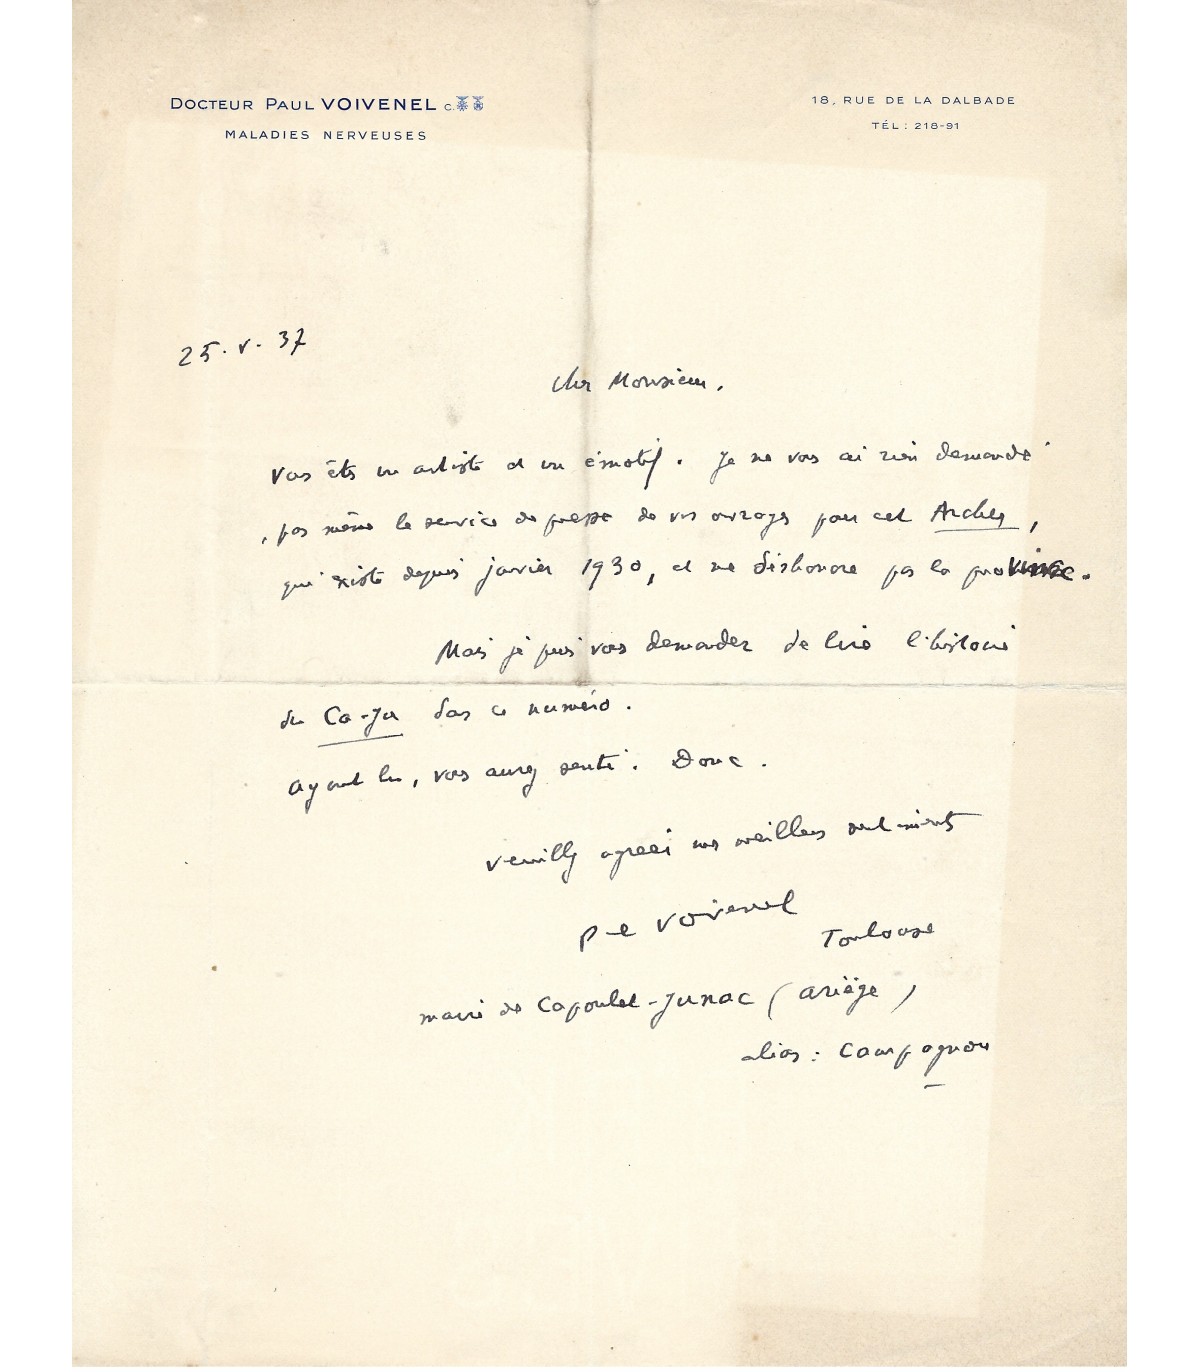 DOCTEUR PAUL VOIVENEL C.
MALADIES NERVEUSES
18, RUE DE LA DALBADE
TÉL : 218-91
25. V. 37
Cher Monsieur.
Vous êtes un artiste et un émotif. Je ne vous ai rien demandé
, pas même le service de presse de vos ouvrages pour cet Archer,
qui existe depuis janvier 1930, et ne déshonore pas la province.
Mais je puis vous demander de lire l'histoire
du Ca-Ju dans ce numéro.
Ayant lu, vous aurez senti. Donc.
Veuillez agréer mes meilleurs sentiments
P-l Voivenel
Toulouse
maire de Capoulet-Junac (Ariège)
alias : Campagnou